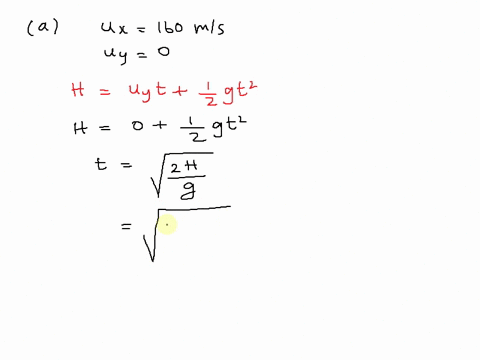 (a) ux = 160 m/s
uy = 0
H = uyt + 1/2 gt²
H = 0 + 1/2 gt²
t = √(2H/g)
= √